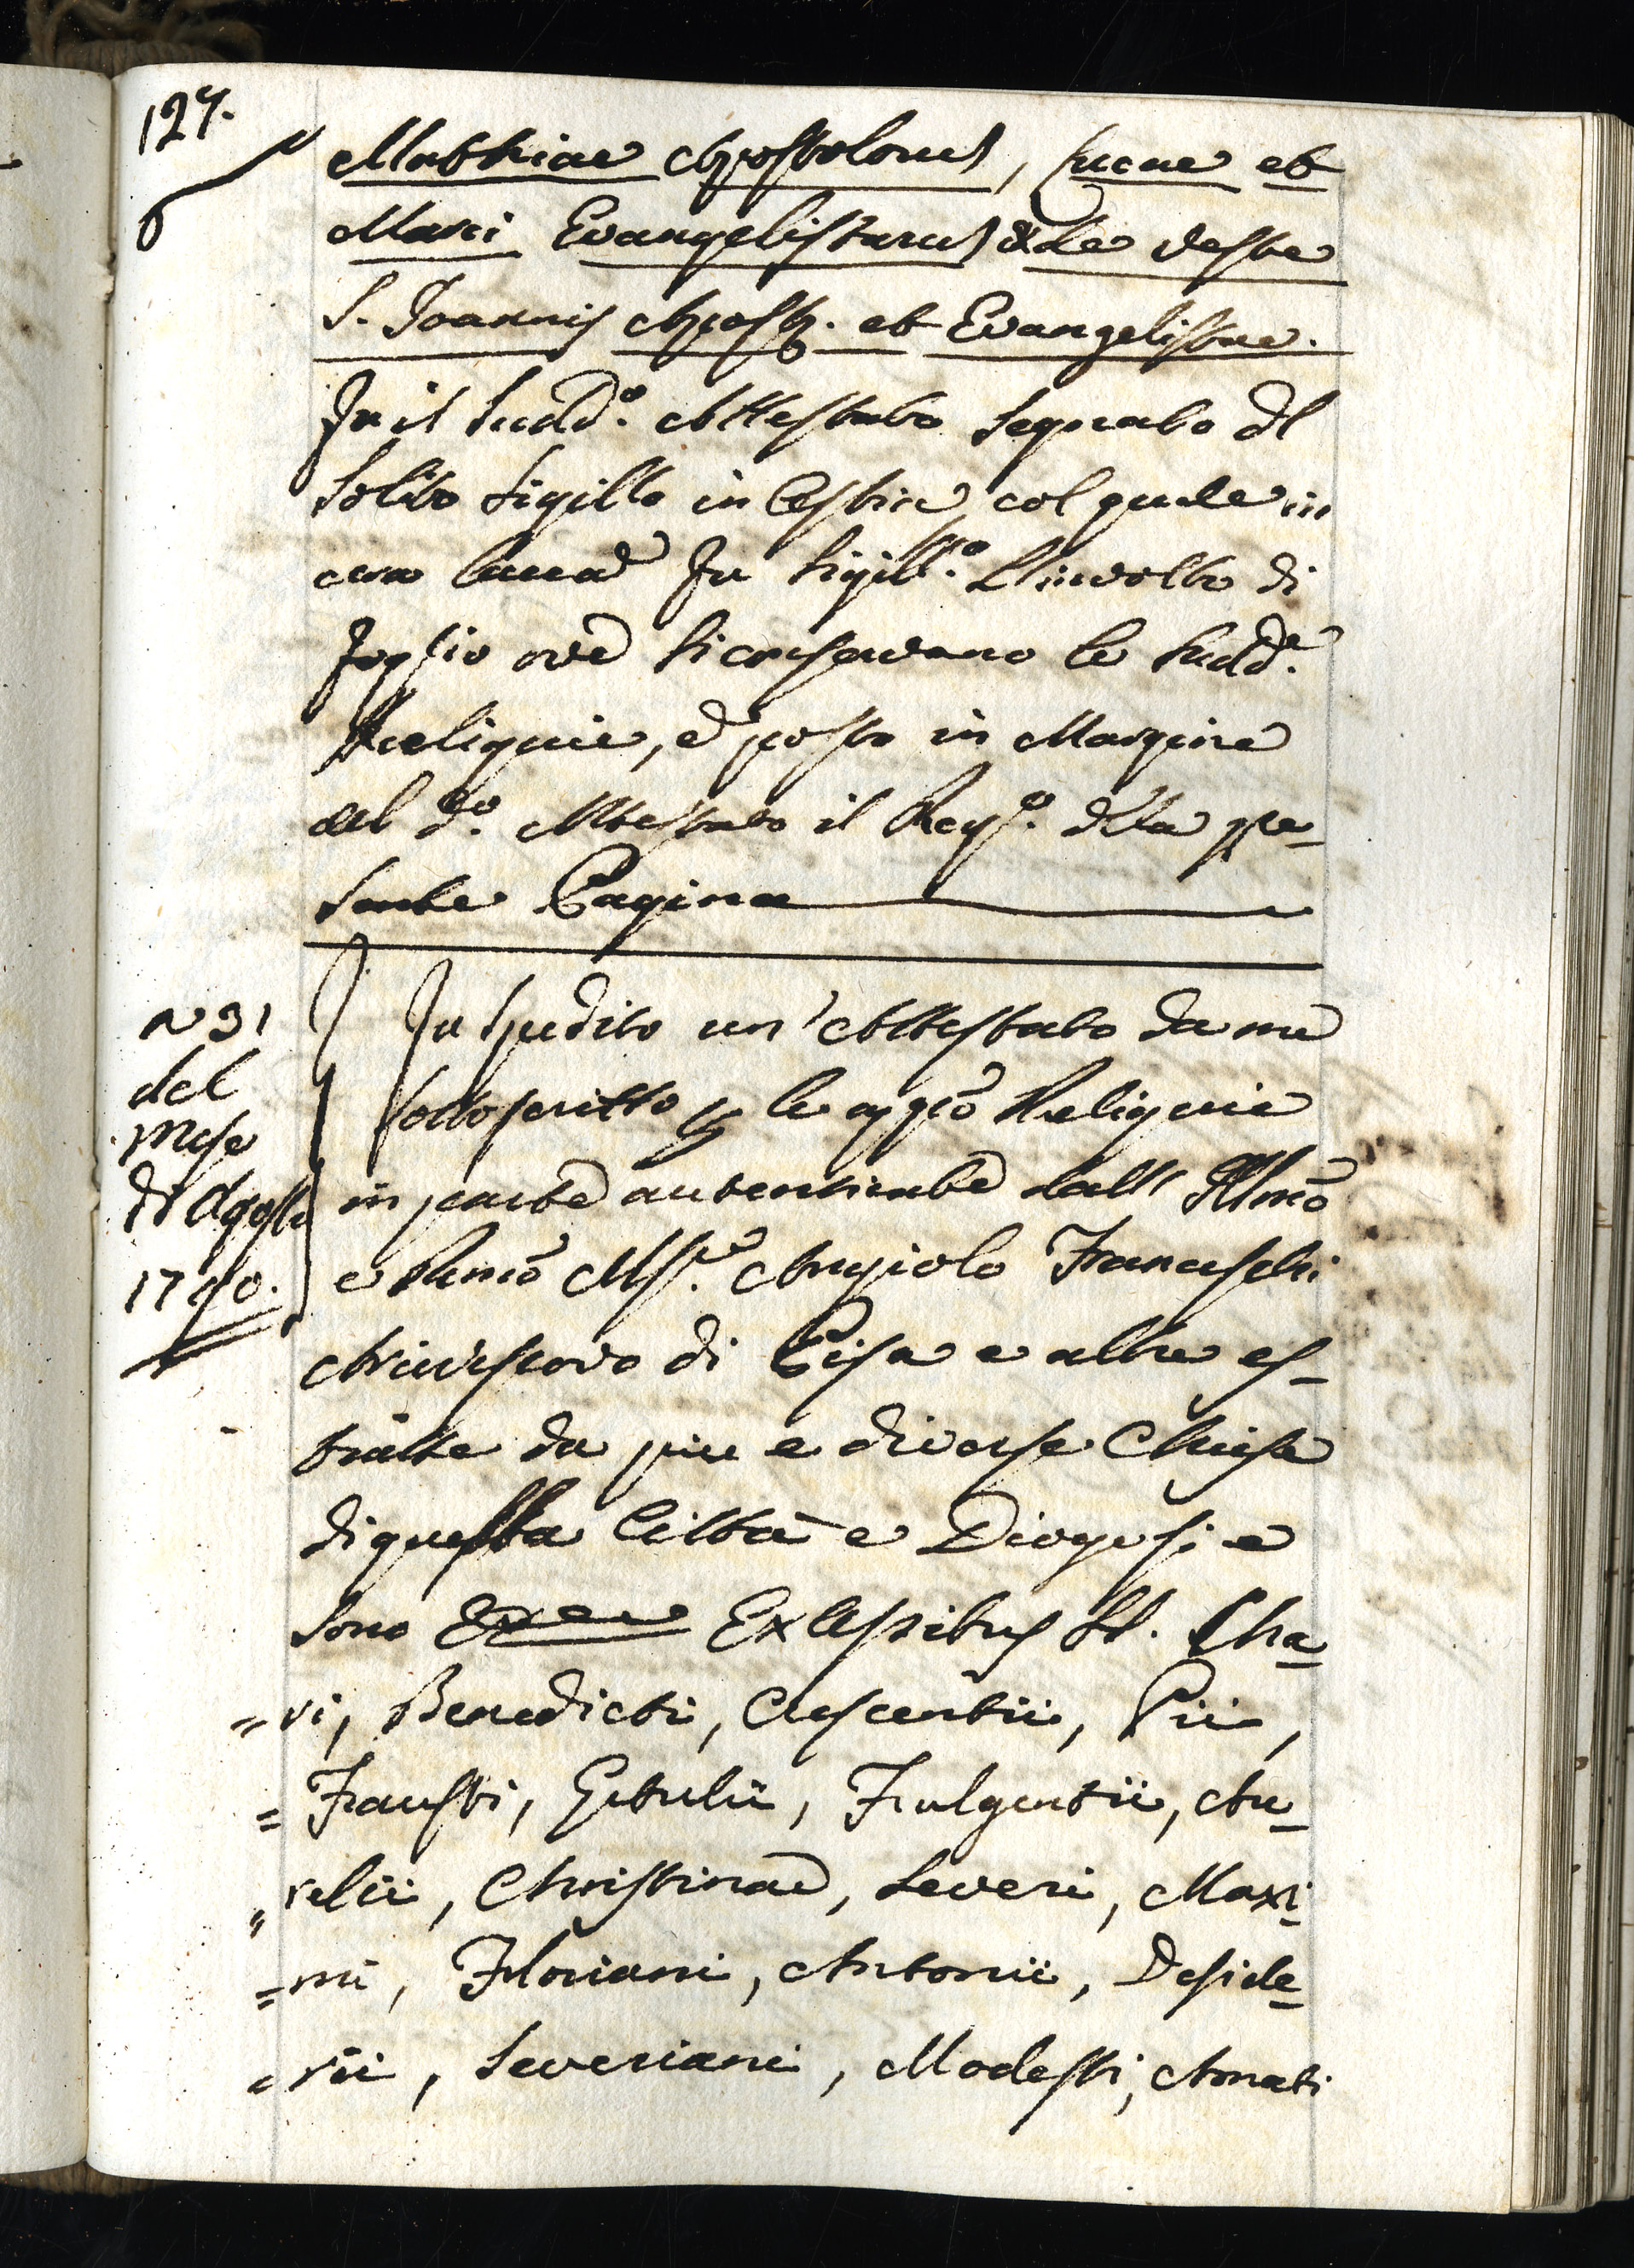 127.
Matthiae Apostolorum, Lucae et
Marci Evangelistarum & de veste
S. Joannis Apost. et Evangelistae.
Fu il Sudd.º Attestato segnato del
Solito Sigillo in Cestrie, col quale in
cera lacca Fu Sigill.to L'involto di
Foglio ove Si conservano le Sudd.e
Reliquie, e posto in Margine
del d.º Attestato il Reg.º della pre-
sente Pagina
A 31
del
mese
di Agosto
1790.
Fu Spedito un' Attestato da me
sottoscritto p le appiè Reliquie
in parte autenticate dall' Illmo
e Rmo Msr.e Angiolo Franceschi
Arcivescovo di Pisa e altre es-
tratte da piu e diverse Chiese
di questa Città e Diogesi e
sono Ex Cessibus SS. Cha-
=ri, Benedicti, Crescentii, Pii,
=Fausti, Getulii, Fulgentii, Au-
"relii, Christinae, Severi, Maxi-
=mi, Floriani, Antonii, Deside-
=rii, Severiani, Modesti, Amati